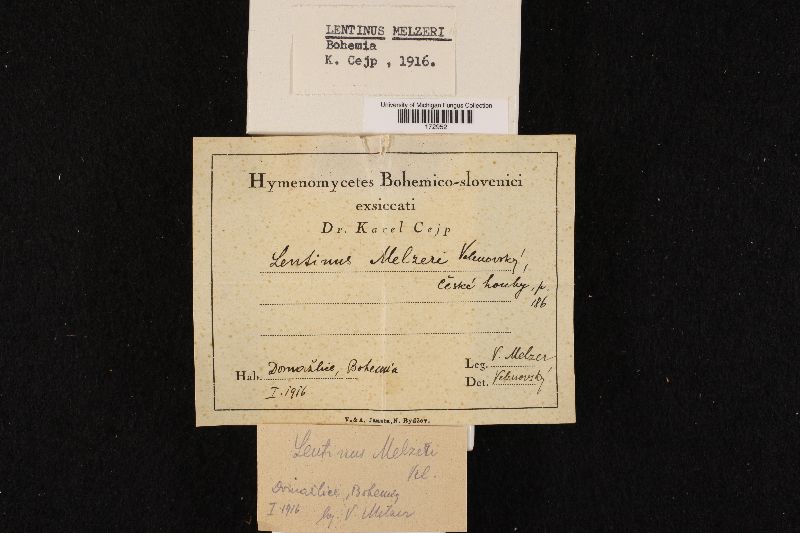 LENTINUS MELZERI
Bohemia
K. Cejp , 1916.
University of Michigan Fungus Collection
172952
Hymenomycetes Bohemico-slovenici
exsiccati
Dr. Karel Cejp
Lentinus Melzeri Velenovský,
České houby, p.
186
Hab. Domažlice, Bohemia
I. 1916
Leg. V. Melzer
Det. Velenovský
V. & A. Janata, N. Bydžov.
Lentinus Melzeri
Vel.
Domažlice, Bohemia
I. 1916 leg. V. Melzer